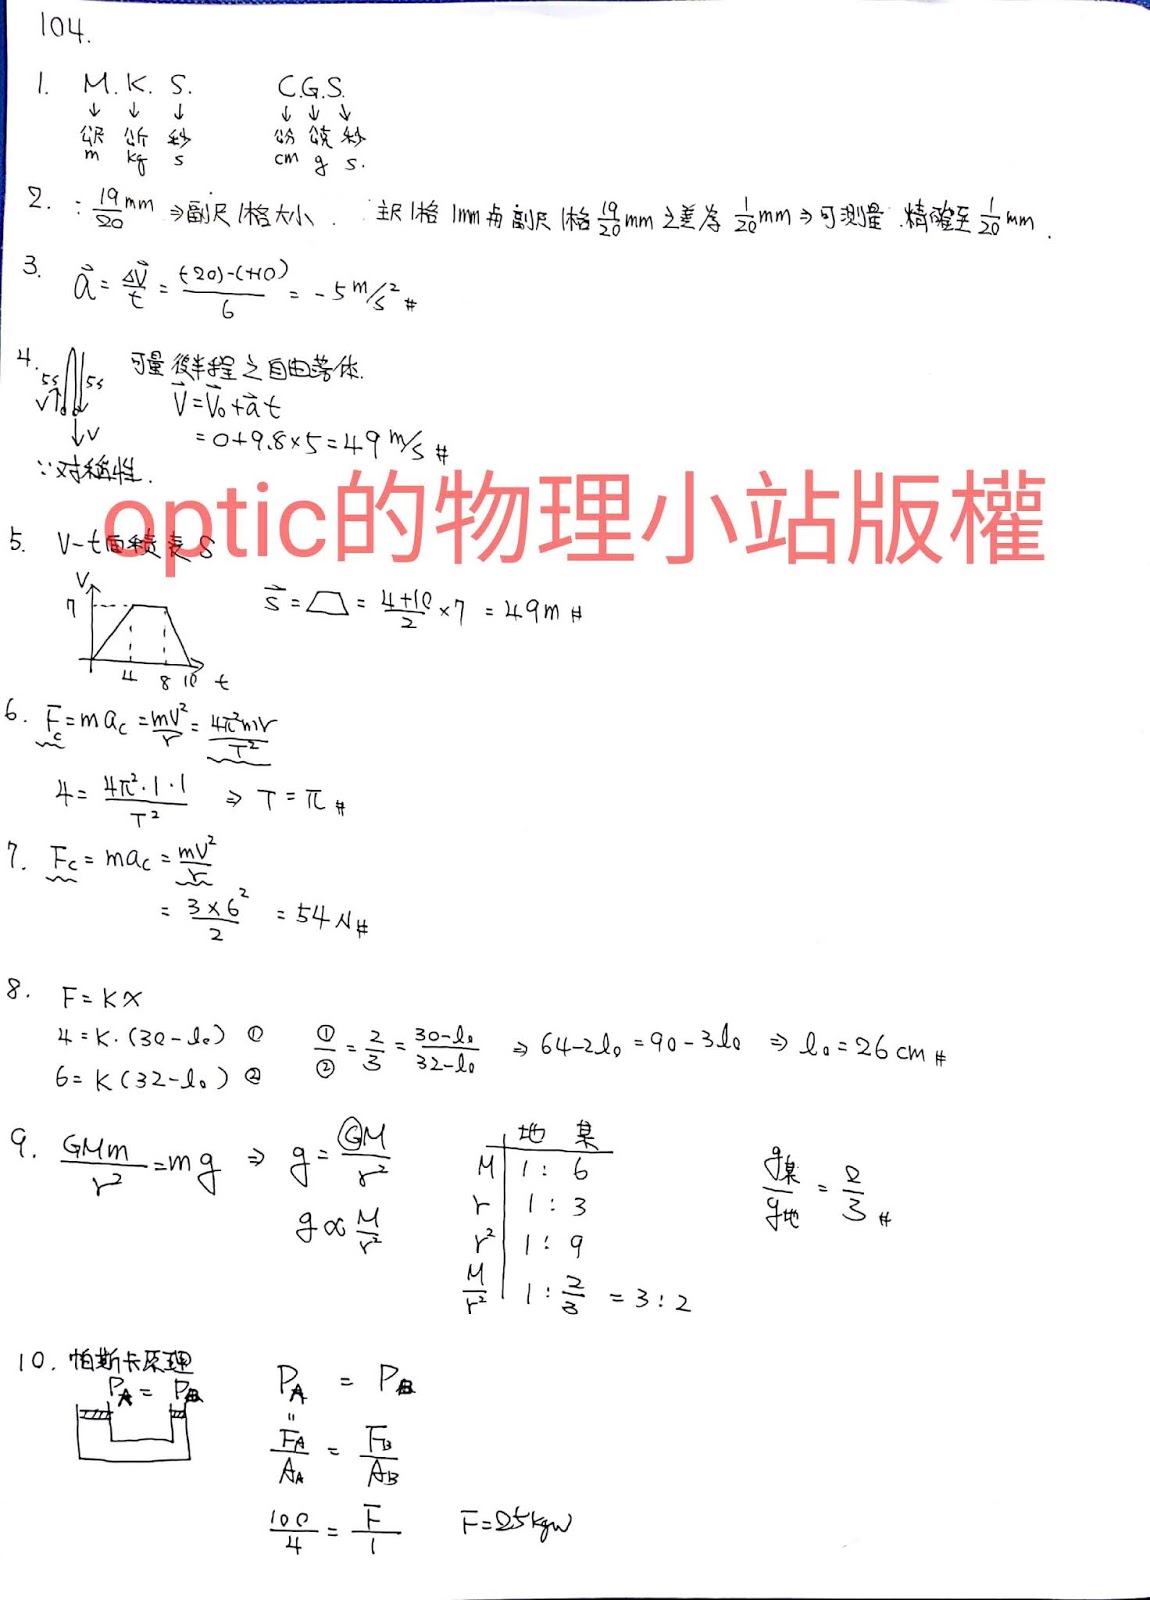 104.
1. M. K. S. C.G.S.
↓ ↓ ↓ ↓ ↓ ↓
公尺 公斤 秒 公分 公克 秒
m kg s cm g s.
2. : 19/20 mm ⇒副尺1格大小. 主尺1格1mm與副尺1格19/20mm之差為1/20mm⇒可測量 精確至1/20mm.
3. a⃗ = ΔV⃗/t = (-20)-(+10)/6 = -5 m/s² #
4. 5s 5s 可量後半程之自由落体.
V V⃗=V⃗₀+a⃗t
V =0+9.8×5=49 m/s #
∵对稱性.
optic的物理小站版權
5. V-t面積表S
V
7 S⃗ = ⏢ = 4+10/2 ×7 = 49m #
4 8 10 t
6. Fc=mac=mV²/r=4π²mr/T²
4= 4π²·1·1/T² ⇒ T=π #
7. Fc= mac = mV²/r
= 3×6²/2 = 54N #
8. F=Kx
4=K·(30-l₀) ① ①/② = 2/3 = 30-l₀/32-l₀ ⇒ 64-2l₀=90-3l₀ ⇒ l₀=26cm #
6=K(32-l₀) ②
9. GMm/r²=mg ⇒ g= GM/r² 地 某
M 1:6
g∝M/r² r 1:3 g某/g地 = 2/3 #
r² 1:9
M/r² 1:2/3 = 3:2
10. 帕斯卡原理
PA = PB PA = PB
"
FA/AA = FB/AB
100/4 = F/1 F=25kgw